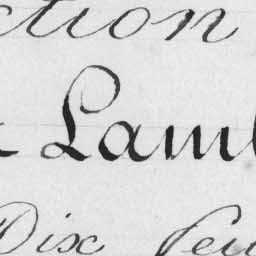 ction
Lam
Dix feu